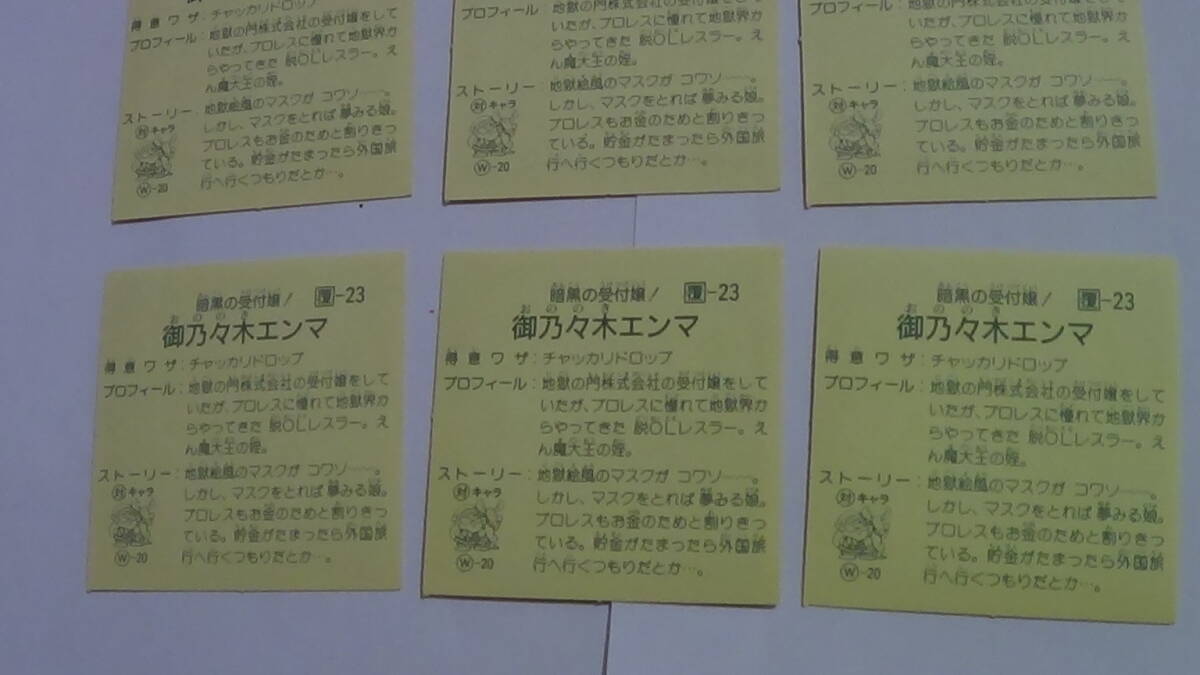 得意ワザ:チャッカリドロップ
プロフィール:地獄の門株式会社の受付嬢をして
いたが、プロレスに憧れて地獄界か
らやってきた 脱OLレスラー。え
ん魔大王の姪。
ストーリー:地獄絵風のマスクが コワソ──。
しかし、マスクをとれば夢みる娘。
プロレスもお金のためと割りきっ
ている。貯金がたまったら外国旅
行へ行くつもりだとか…。
対キャラ
W-20
地獄の門株式会社の受付嬢をして
いたが、プロレスに憧れて地獄界か
らやってきた 脱OLレスラー。え
ん魔大王の姪。
ストーリー:地獄絵風のマスクが コワソ──。
しかし、マスクをとれば夢みる娘。
プロレスもお金のためと割りきっ
ている。貯金がたまったら外国旅
行へ行くつもりだとか…。
対キャラ
W-20
プロフィール:地獄の門株式会社の受付嬢をして
いたが、プロレスに憧れて地獄界か
らやってきた 脱OLレスラー。え
ん魔大王の姪。
ストーリー:地獄絵風のマスクが コワソ──。
しかし、マスクをとれば夢みる娘。
プロレスもお金のためと割りきっ
ている。貯金がたまったら外国旅
行へ行くつもりだとか…。
対キャラ
W-20
暗黒の受付嬢! 覆-23
御乃々木エンマ
得意ワザ:チャッカリドロップ
プロフィール:地獄の門株式会社の受付嬢をして
いたが、プロレスに憧れて地獄界か
らやってきた 脱OLレスラー。え
ん魔大王の姪。
ストーリー:地獄絵風のマスクが コワソ──。
しかし、マスクをとれば夢みる娘。
プロレスもお金のためと割りきっ
ている。貯金がたまったら外国旅
行へ行くつもりだとか…。
対キャラ
W-20
暗黒の受付嬢! 覆-23
御乃々木エンマ
得意ワザ:チャッカリドロップ
プロフィール:地獄の門株式会社の受付嬢をして
いたが、プロレスに憧れて地獄界か
らやってきた 脱OLレスラー。え
ん魔大王の姪。
ストーリー:地獄絵風のマスクが コワソ──。
しかし、マスクをとれば夢みる娘。
プロレスもお金のためと割りきっ
ている。貯金がたまったら外国旅
行へ行くつもりだとか…。
対キャラ
W-20
暗黒の受付嬢! 覆-23
御乃々木エンマ
得意ワザ:チャッカリドロップ
プロフィール:地獄の門株式会社の受付嬢をして
いたが、プロレスに憧れて地獄界か
らやってきた 脱OLレスラー。え
ん魔大王の姪。
ストーリー:地獄絵風のマスクが コワソ──。
しかし、マスクをとれば夢みる娘。
プロレスもお金のためと割りきっ
ている。貯金がたまったら外国旅
行へ行くつもりだとか…。
対キャラ
W-20